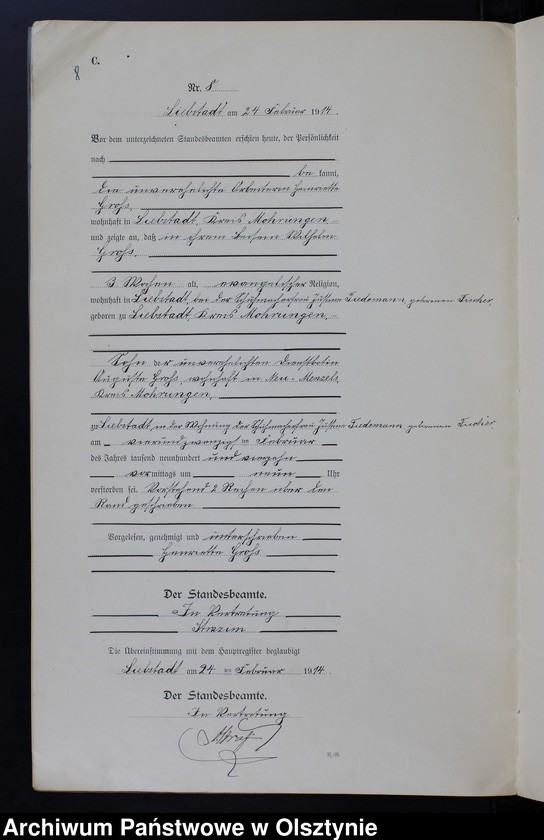 C.
8
Nr. 8
Liebstadt am 24 Februar 1914.
Vor dem unterzeichneten Standesbeamten erschien heute, der Persönlichkeit
nach
be kannt,
die unverehelichte Arbeiterin Henriette
Grohs,
wohnhaft in Liebstadt, Kreis Mohrungen,
und zeigte an, daß in ihrem Beisein Wilhelm
Grohs,
3 Wochen alt, evangelischer Religion,
wohnhaft in Liebstadt, bei der Schuhmacherfrau Justine Tiedemann, geborenen Fischer,
geboren zu Liebstadt, Kreis Mohrungen,
Sohn der unverehelichten Dienstbotin
Auguste Grohs, wohnhaft in Neu-Menzels,
Kreis Mohrungen,
zu Liebstadt, in der Wohnung der Schuhmacherfrau Justine Tiedemann geborenen Fischer,
am vierundzwanzigsten Februar
des Jahres tausend neunhundert und vierzehn
vormittags um neun Uhr
verstorben sei. Vorstehend 2 Reihen über den
Rand geschrieben
Vorgelesen, genehmigt und unterschrieben
Henriette Grohs
Der Standesbeamte.
In Vertretung
Die Übereinstimmung mit dem Hauptregister beglaubigt
Liebstadt am 24 ten Februar 1914.
Der Standesbeamte.
In Vertretung
Archiwum Państwowe w Olsztynie